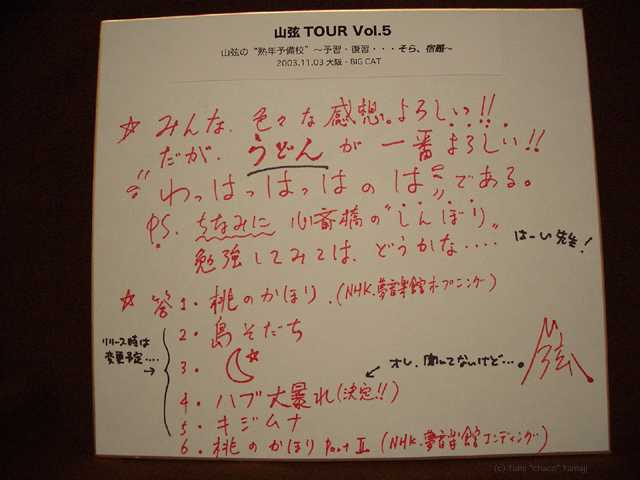 山弦 TOUR Vol.5
山弦の "熟年予備校" ～予習・復習・・・そら、宿題～
2003.11.03 大阪・BIG CAT
☆ みんな、色々な感想。よろしい!!
だが、うどんが一番よろしい!!
"わっはっはっはのは"である。
P.S. ちなみに 心斎橋の"しんぼり"
勉強してみては、どうかな‥‥
はーい先生!
☆ 答 1. 桃のかほり.(NHK.夢音楽館オープニング)
2. 島そだち
3.
4. ハブ大暴れ(決定!!)
5. キジムナ
6. 桃のかほり Part II (NHK.夢音楽館エンディング)
リリース時は
変更予定‥‥
→
← オレ、聞いてないけど‥。
山弦
(c) Fumi "chaco" Yamaji